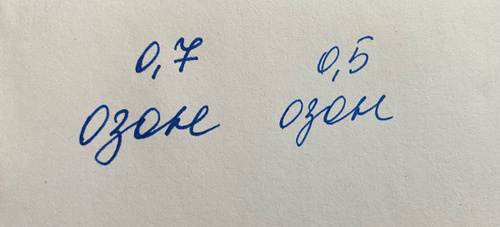 0,7 0,5
озон озон